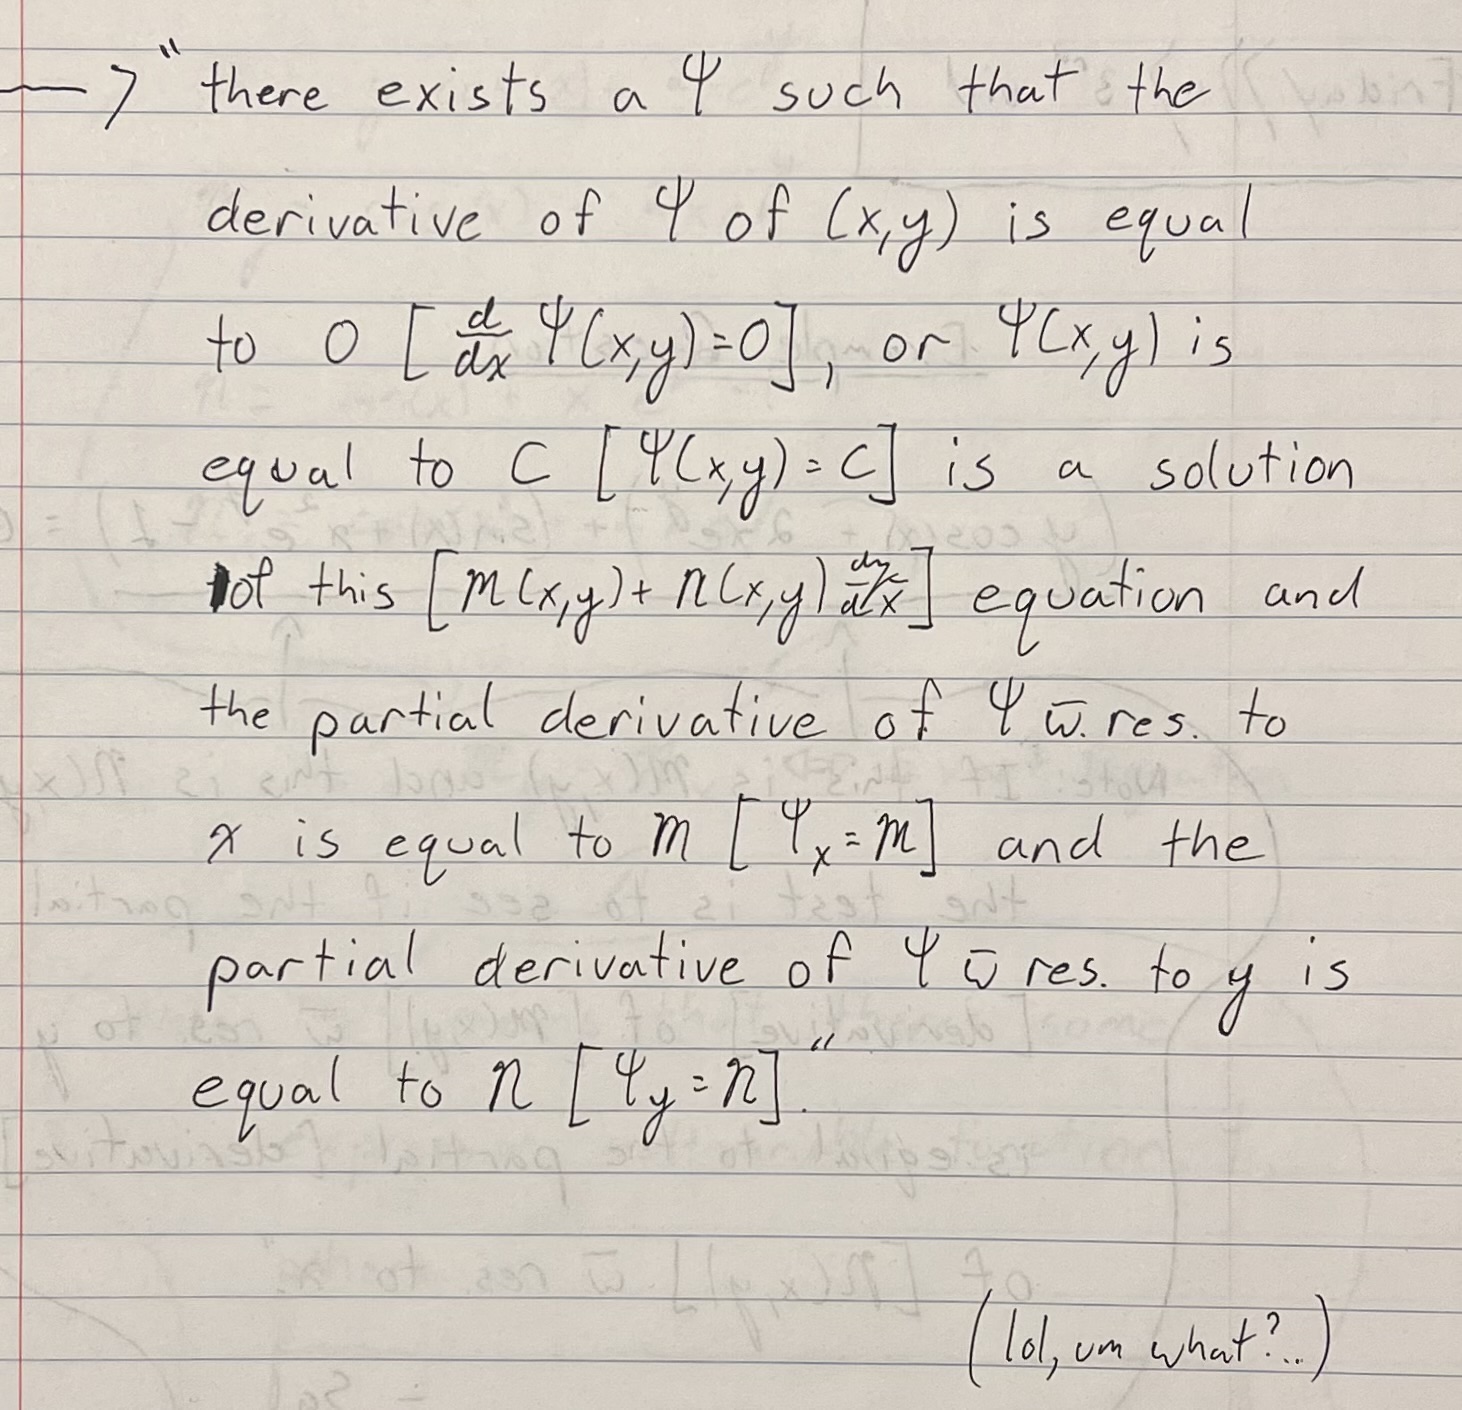 → "there exists a Ψ such that the
derivative of Ψ of (x,y) is equal
to 0 [d/dx Ψ(x,y)=0], or Ψ(x,y) is
equal to C [Ψ(x,y)=C] is a solution
of this [m(x,y)+ n(x,y) dy/dx] equation and
the partial derivative of Ψ w̄. res. to
x is equal to m [Ψx=m] and the
partial derivative of Ψ w̄ res. to y is
equal to n [Ψy=n]."
(lol, um what?..)